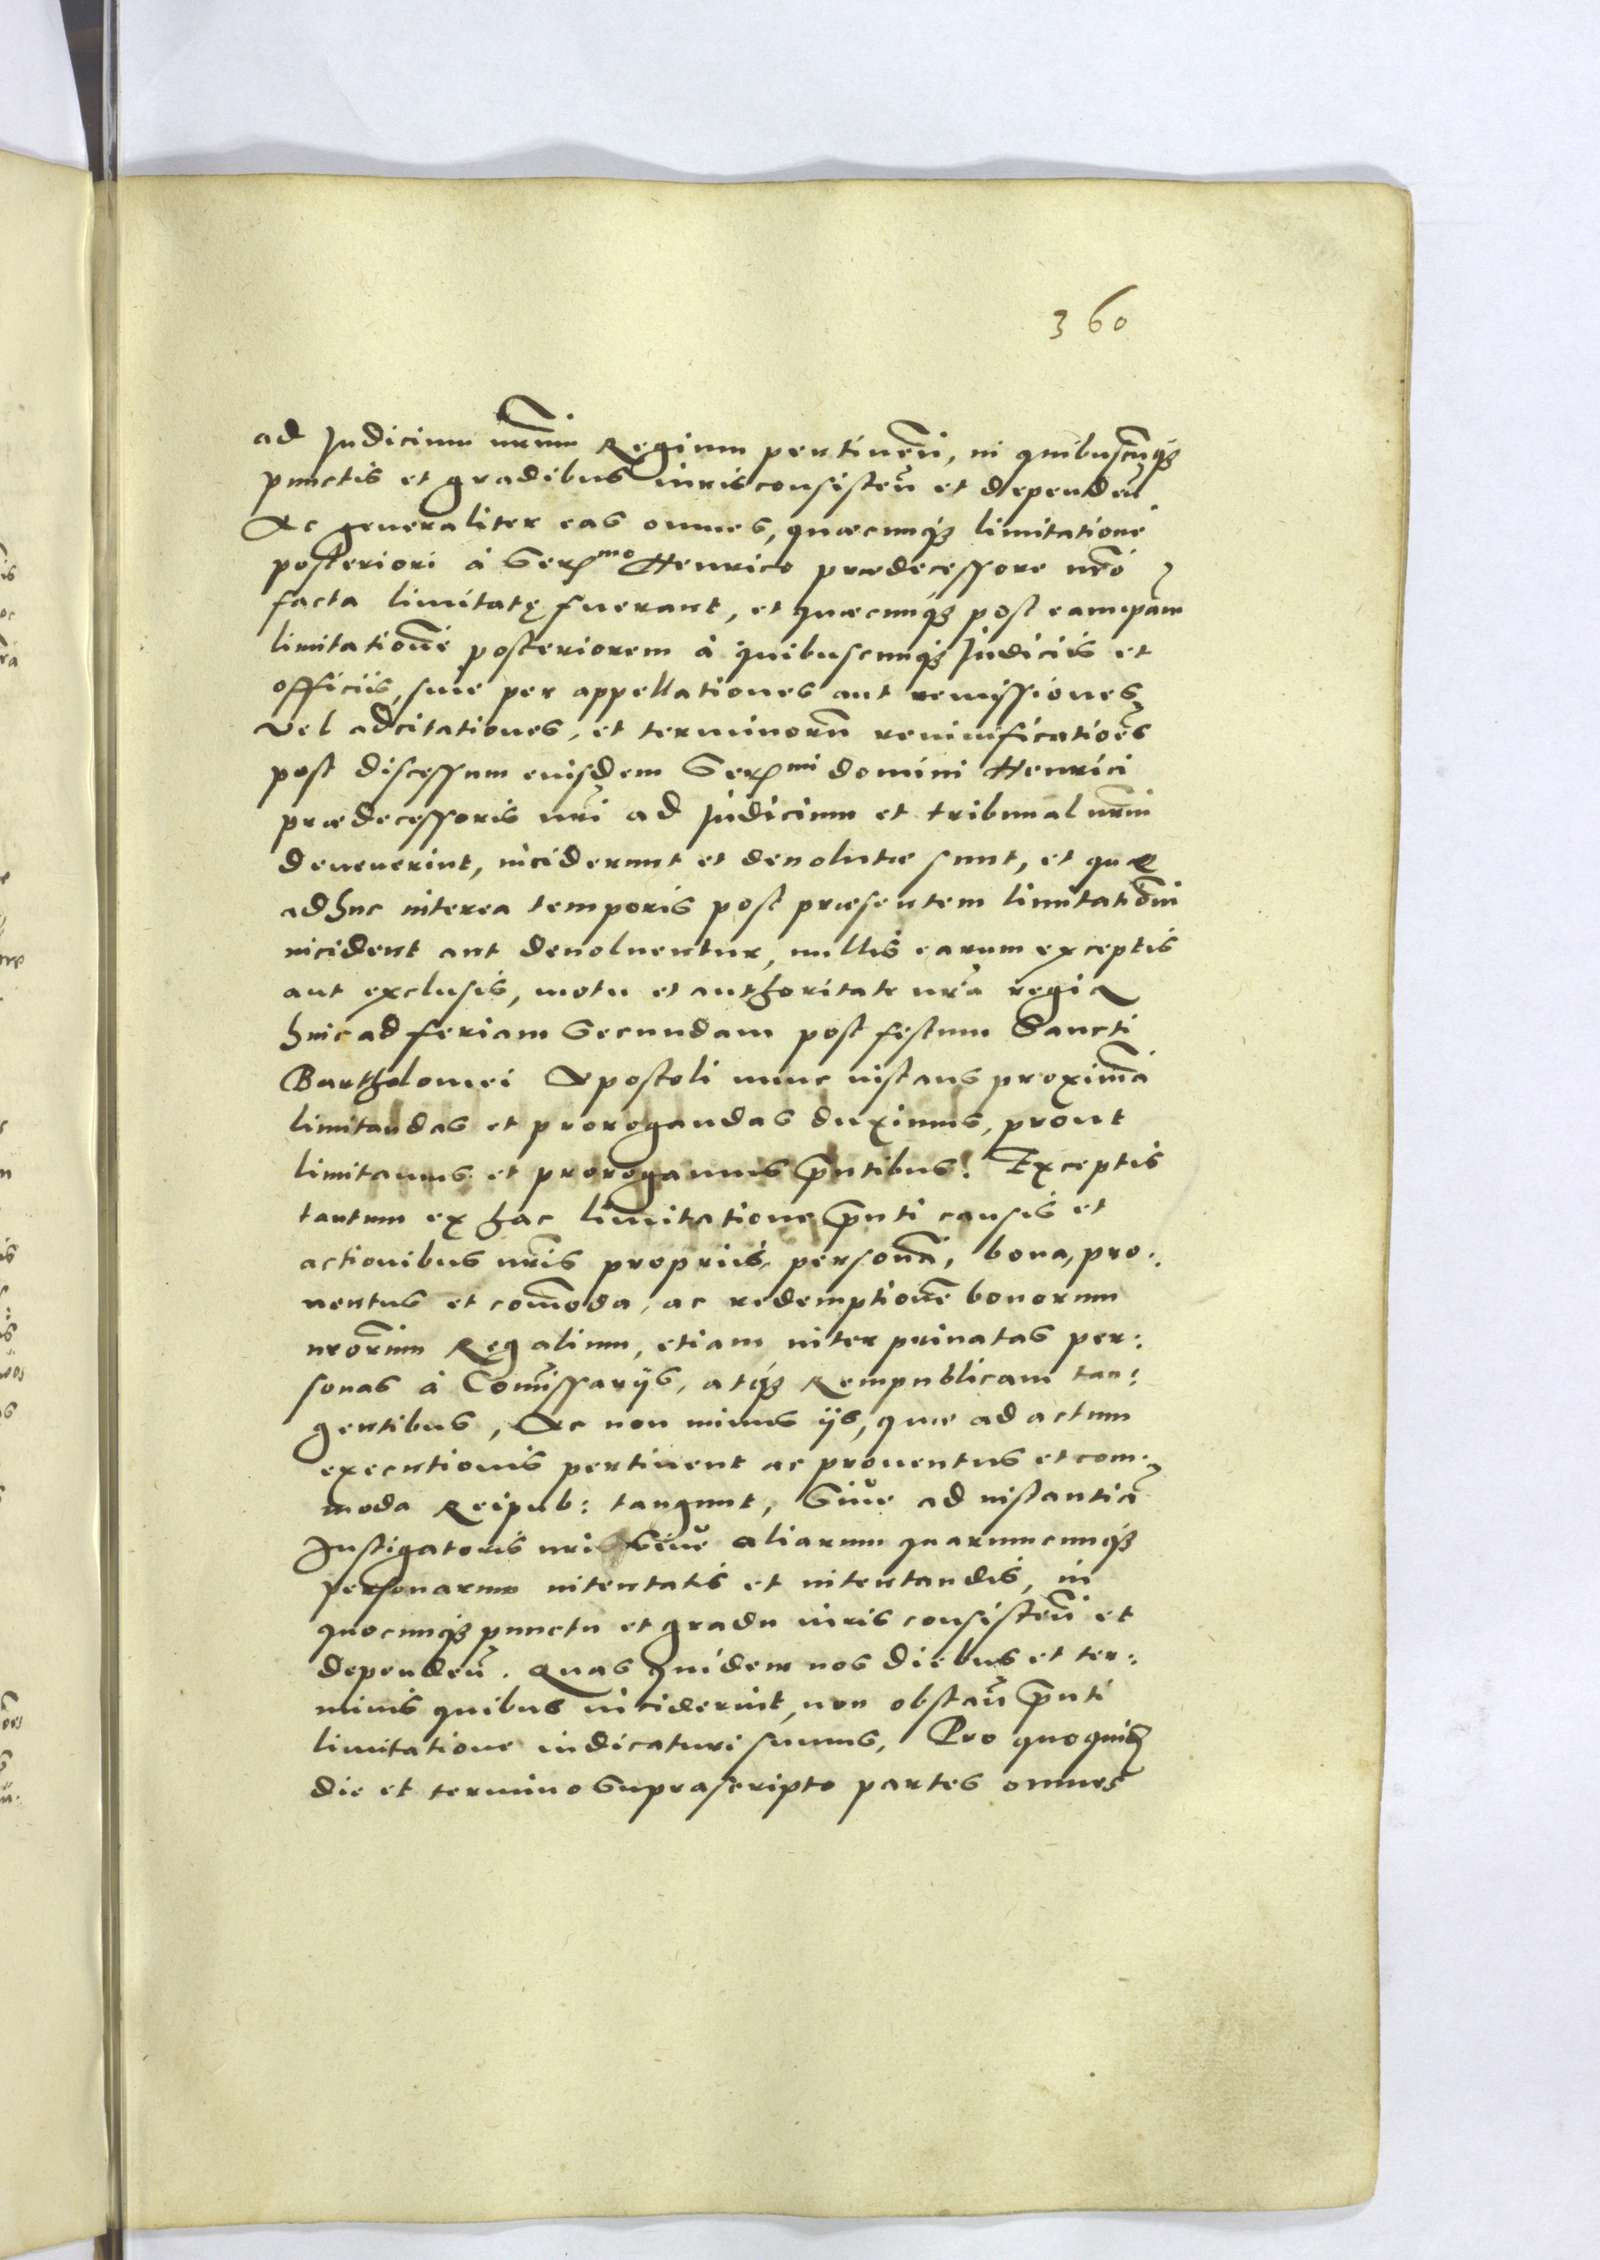 360
ad Judicium nrūm Regium pertineñ, in quibuscūq;
punctis et gradibus iuris consisteñ et dependeñ
Ac generaliter eas omnes, quæcunq; limitatione
posteriori à Ser.mo Henrico prædecessore nrō
facta limitatę fuerant, et quæcunq; post eam ipsam
limitationē posteriorem à quibuscunq; Judiciis et
officiis, siue per appellationes aut remissiones
vel adcitationes, et terminorū reuiuificatiōes
post discessum eiusdem Ser.mi domini Henrici
prædecessoris nrī ad Judicium et tribunal nrūm
deuenerint, inciderunt et deuolutæ sunt, et quæ
adhuc interea temporis post præsentem limitatiōem
incident aut deuoluentur, nullis earum exceptis
aut exclusis, motu et authoritate nrā regia
hinc ad feriam Secundam post festum Sancti
Bartholomei Apostoli nunc instans proximā
limitandas et prorogandas duximus, prout
limitamus et prorogamus pñtibus: Exceptis
tantum ex hac limitatione pñti causis et
actionibus nrīs propriis, personā, bona, pro:
uentus et comoda, ac redemptionē bonorum
nrorum Regalium, etiam inter priuatas per:
sonas à Comissarijs, atq; Rempublicam tan:
gentibus, Ac non minus ijs, quæ ad actum
executionis pertinent ac prouentus et com:
moda Reipub: tangunt, Siue ad instantiā
Instigatoris nrī Siue aliarum quarumcunq;
personarum intentatis et intentandis, in
quocunq; punctu et gradu iuris consisteñ et
dependeñ. Quas quidem nos diebus et ter:
minis quibus inciderint, non obstañ pñti
limitatione iudicaturi sumus, Pro quo quid;
die et termino Suprascripto partes omnes